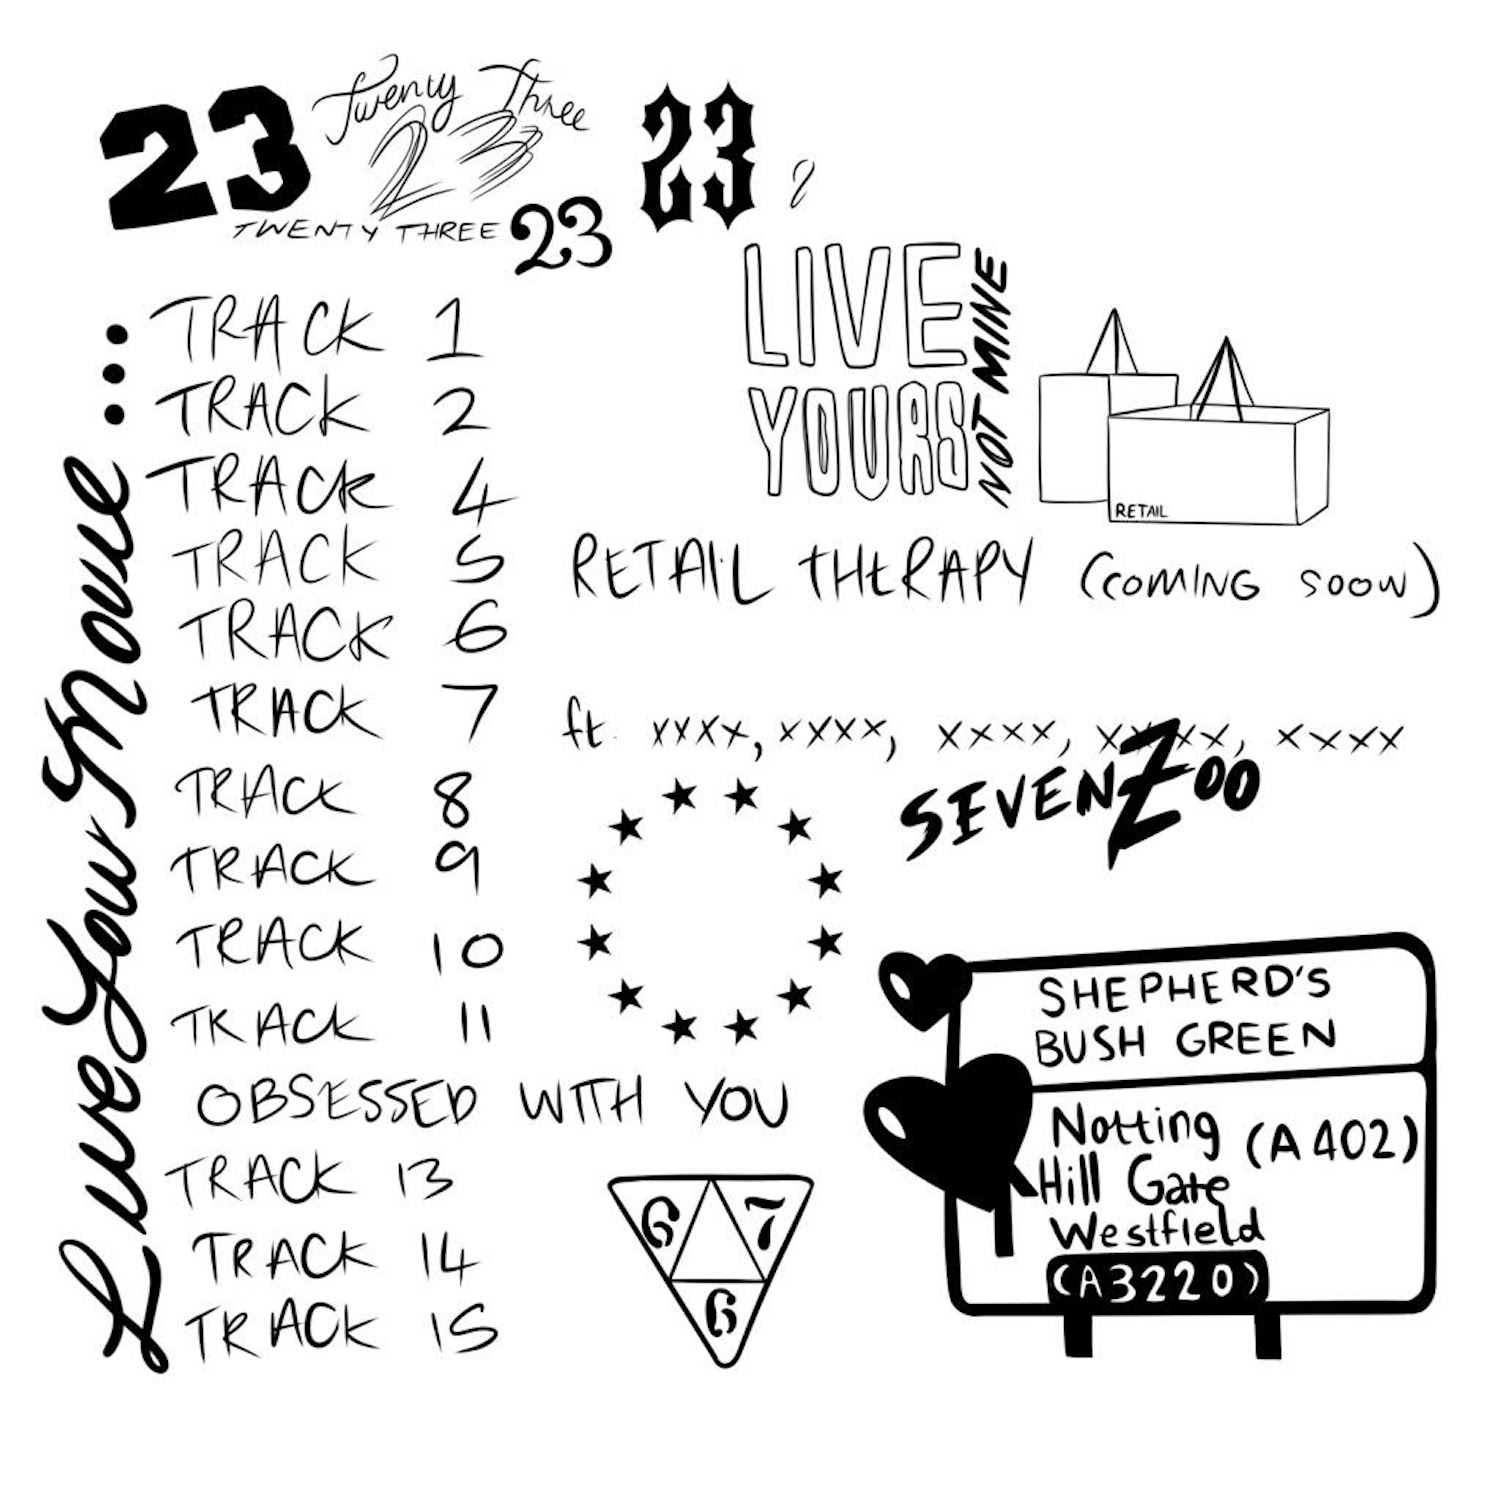 23
Twenty Three
23
TWENTY THREE
23
23
2
LIVE
YOURS
NOT MINE
RETAIL
Live Your Movie...
TRACK 1
TRACK 2
TRACK 4
TRACK 5
TRACK 6
TRACK 7
TRACK 8
TRACK 9
TRACK 10
TRACK 11
OBSESSED WITH YOU
TRACK 13
TRACK 14
TRACK 15
RETAIL THERAPY (COMING SOON)
ft. xxxx, xxxx, xxxx, xxxx, xxxx
SEVENZOO
6 7
6
SHEPHERD'S
BUSH GREEN
Notting (A402)
Hill Gate
Westfield
(A3220)